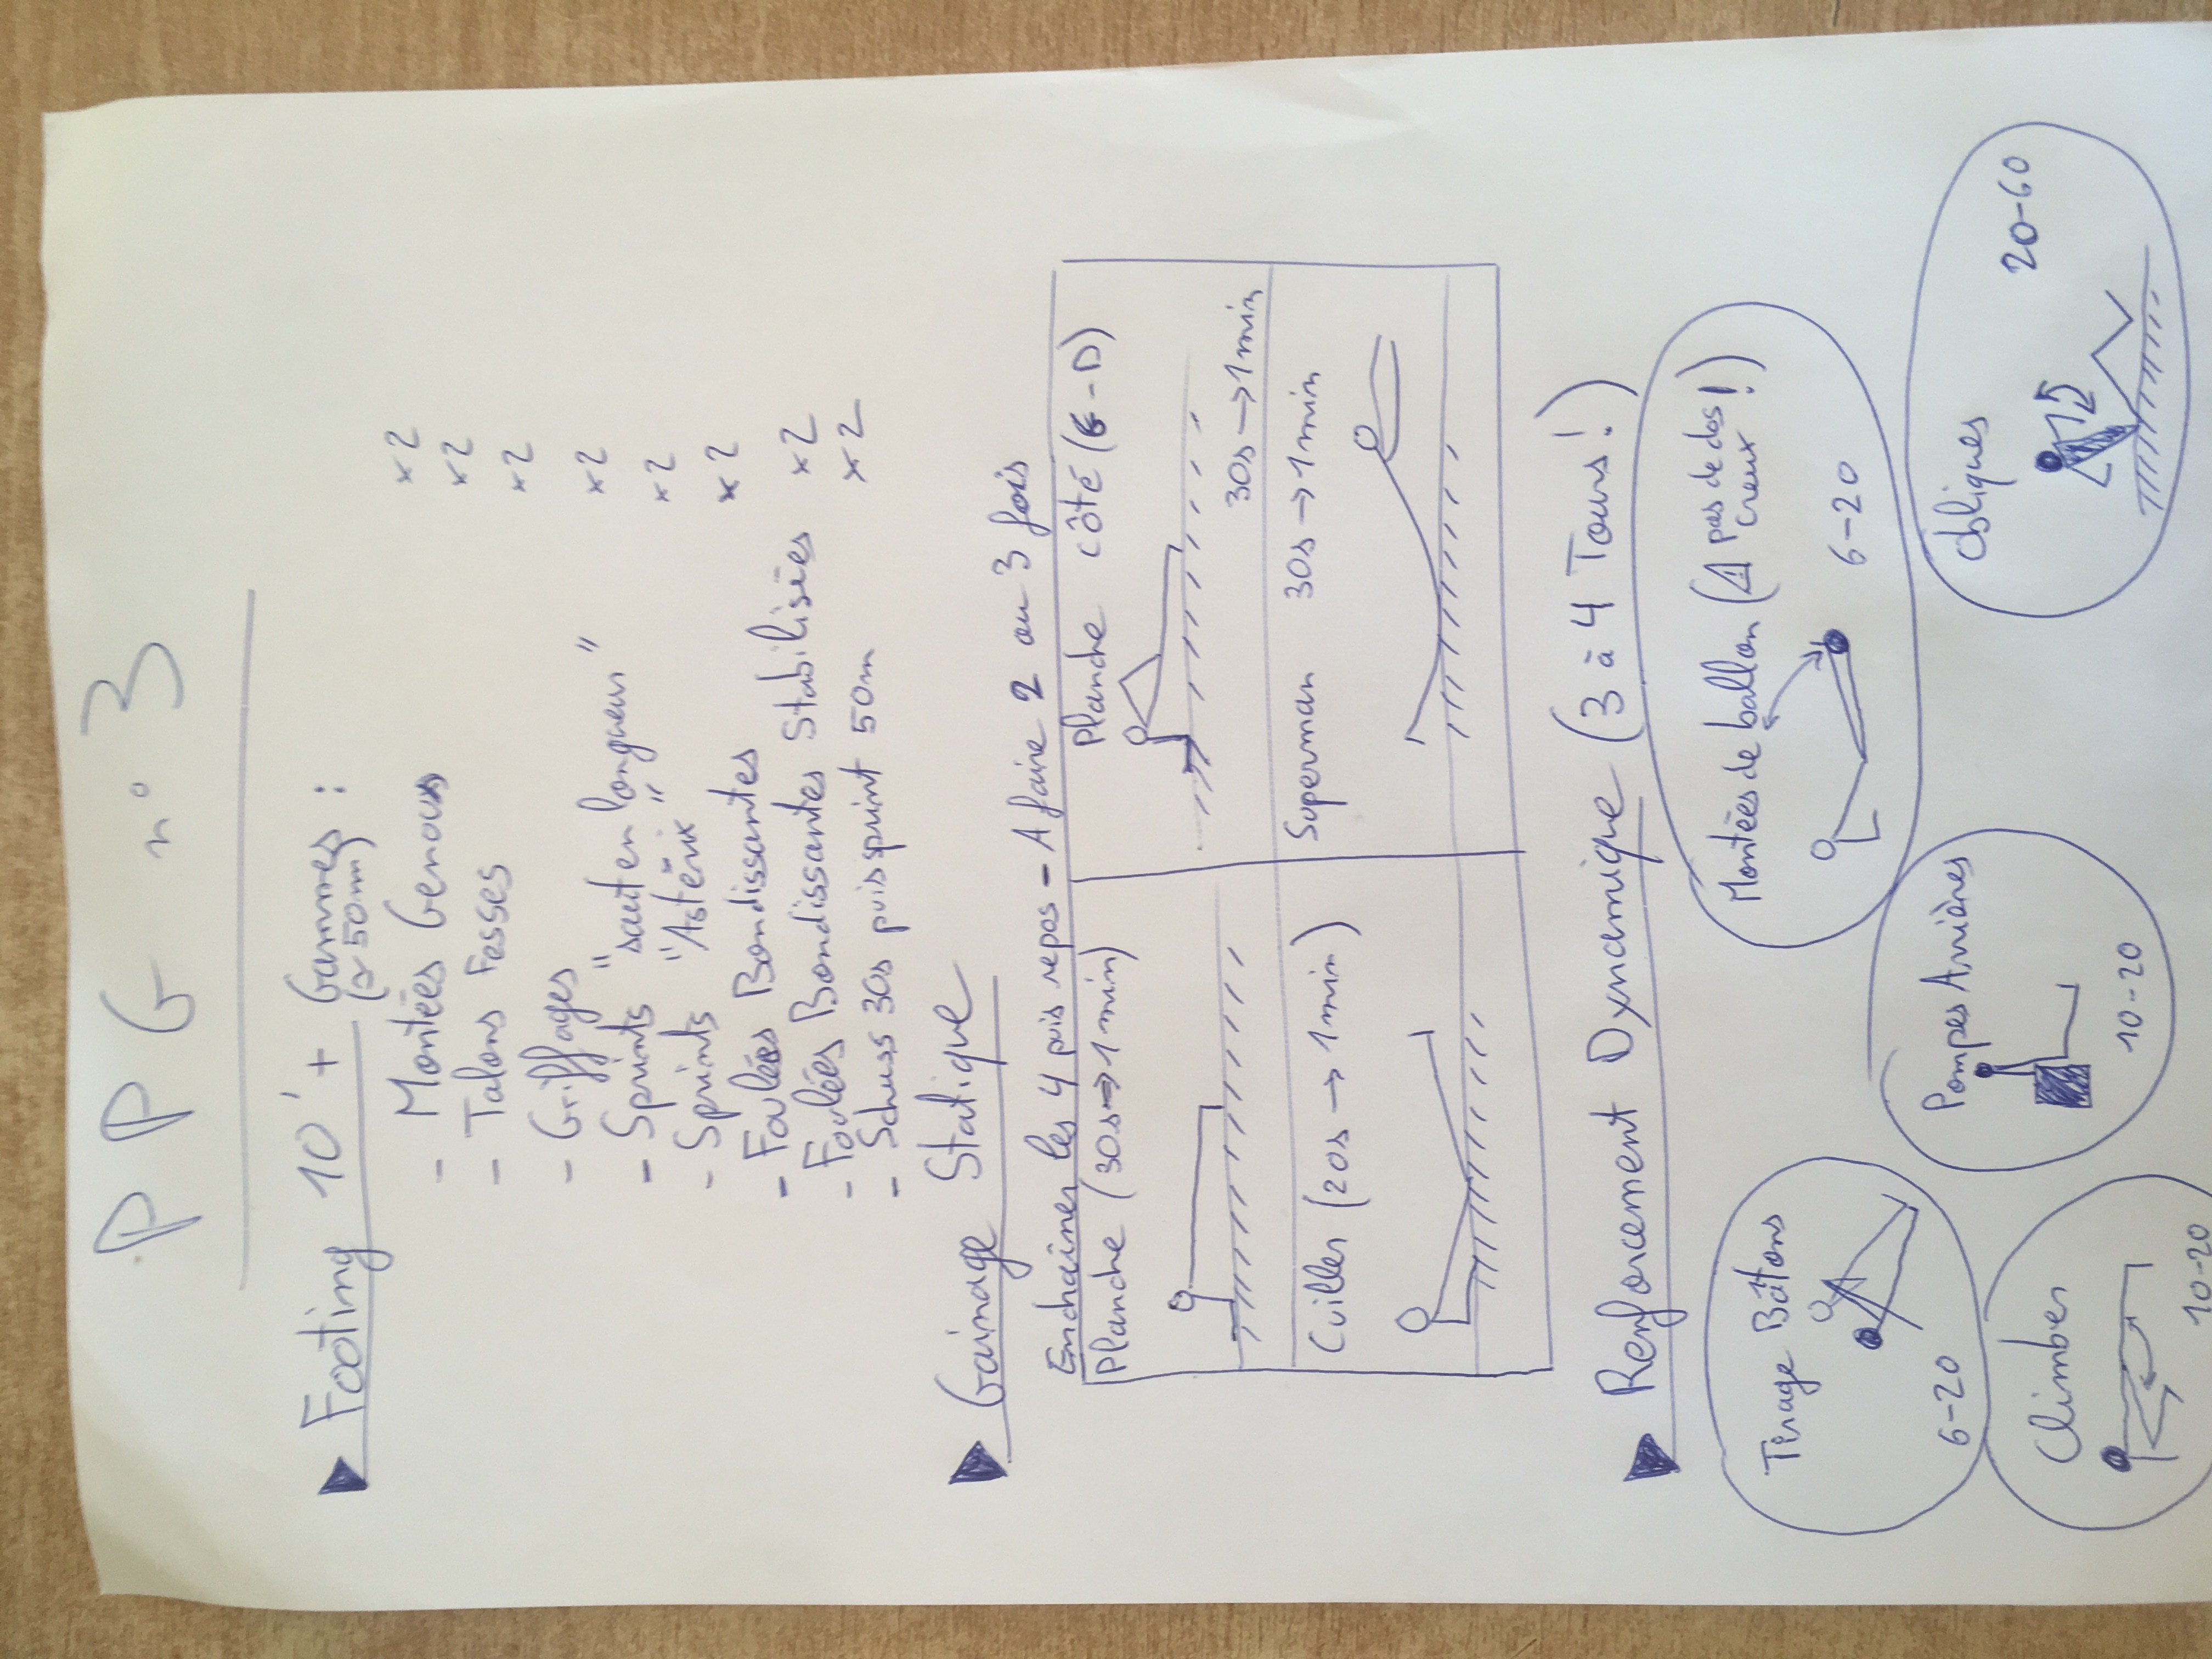 PPG n° 3
Footing 10' + Gammes :
(≈ 50m)
- Montées Genoux x2
- Talons Fesses x2
- Griffages x2
- Sprints "saut en longueur" x2
- Sprints "Astérix" x2
- Foulées Bondissantes x2
- Foulées Bondissantes Stabilisées x2
- Schuss 30s puis sprint 50m x2
Gainage Statique
Enchainer les 4 puis repos - A faire 2 ou 3 fois
Planche (30s → 1min)
Planche côté (G-D)
30s → 1min
Cuiller (20s → 1min)
Superman 30s → 1min
Renforcement Dynamique (3 à 4 Tours!)
Tirage Bâtons
6-20
Montées de ballon (⚠ pas de dos creux!)
6-20
Pompes Arrières
10-20
Climber
10-20
Obliques
20-60